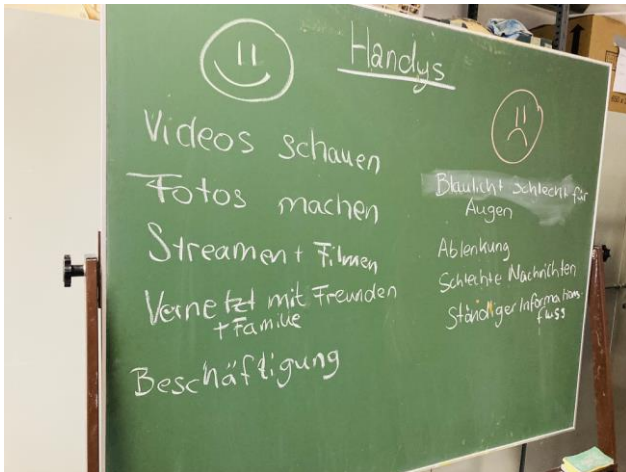 Handys
Videos schauen
Fotos machen
Streamen + Filmen
Vernetzt mit Freunden
+ Familie
Beschäftigung
Blaulicht schlecht für
Augen
Ablenkung
Schlechte Nachrichten
Ständiger Informations-
fluss